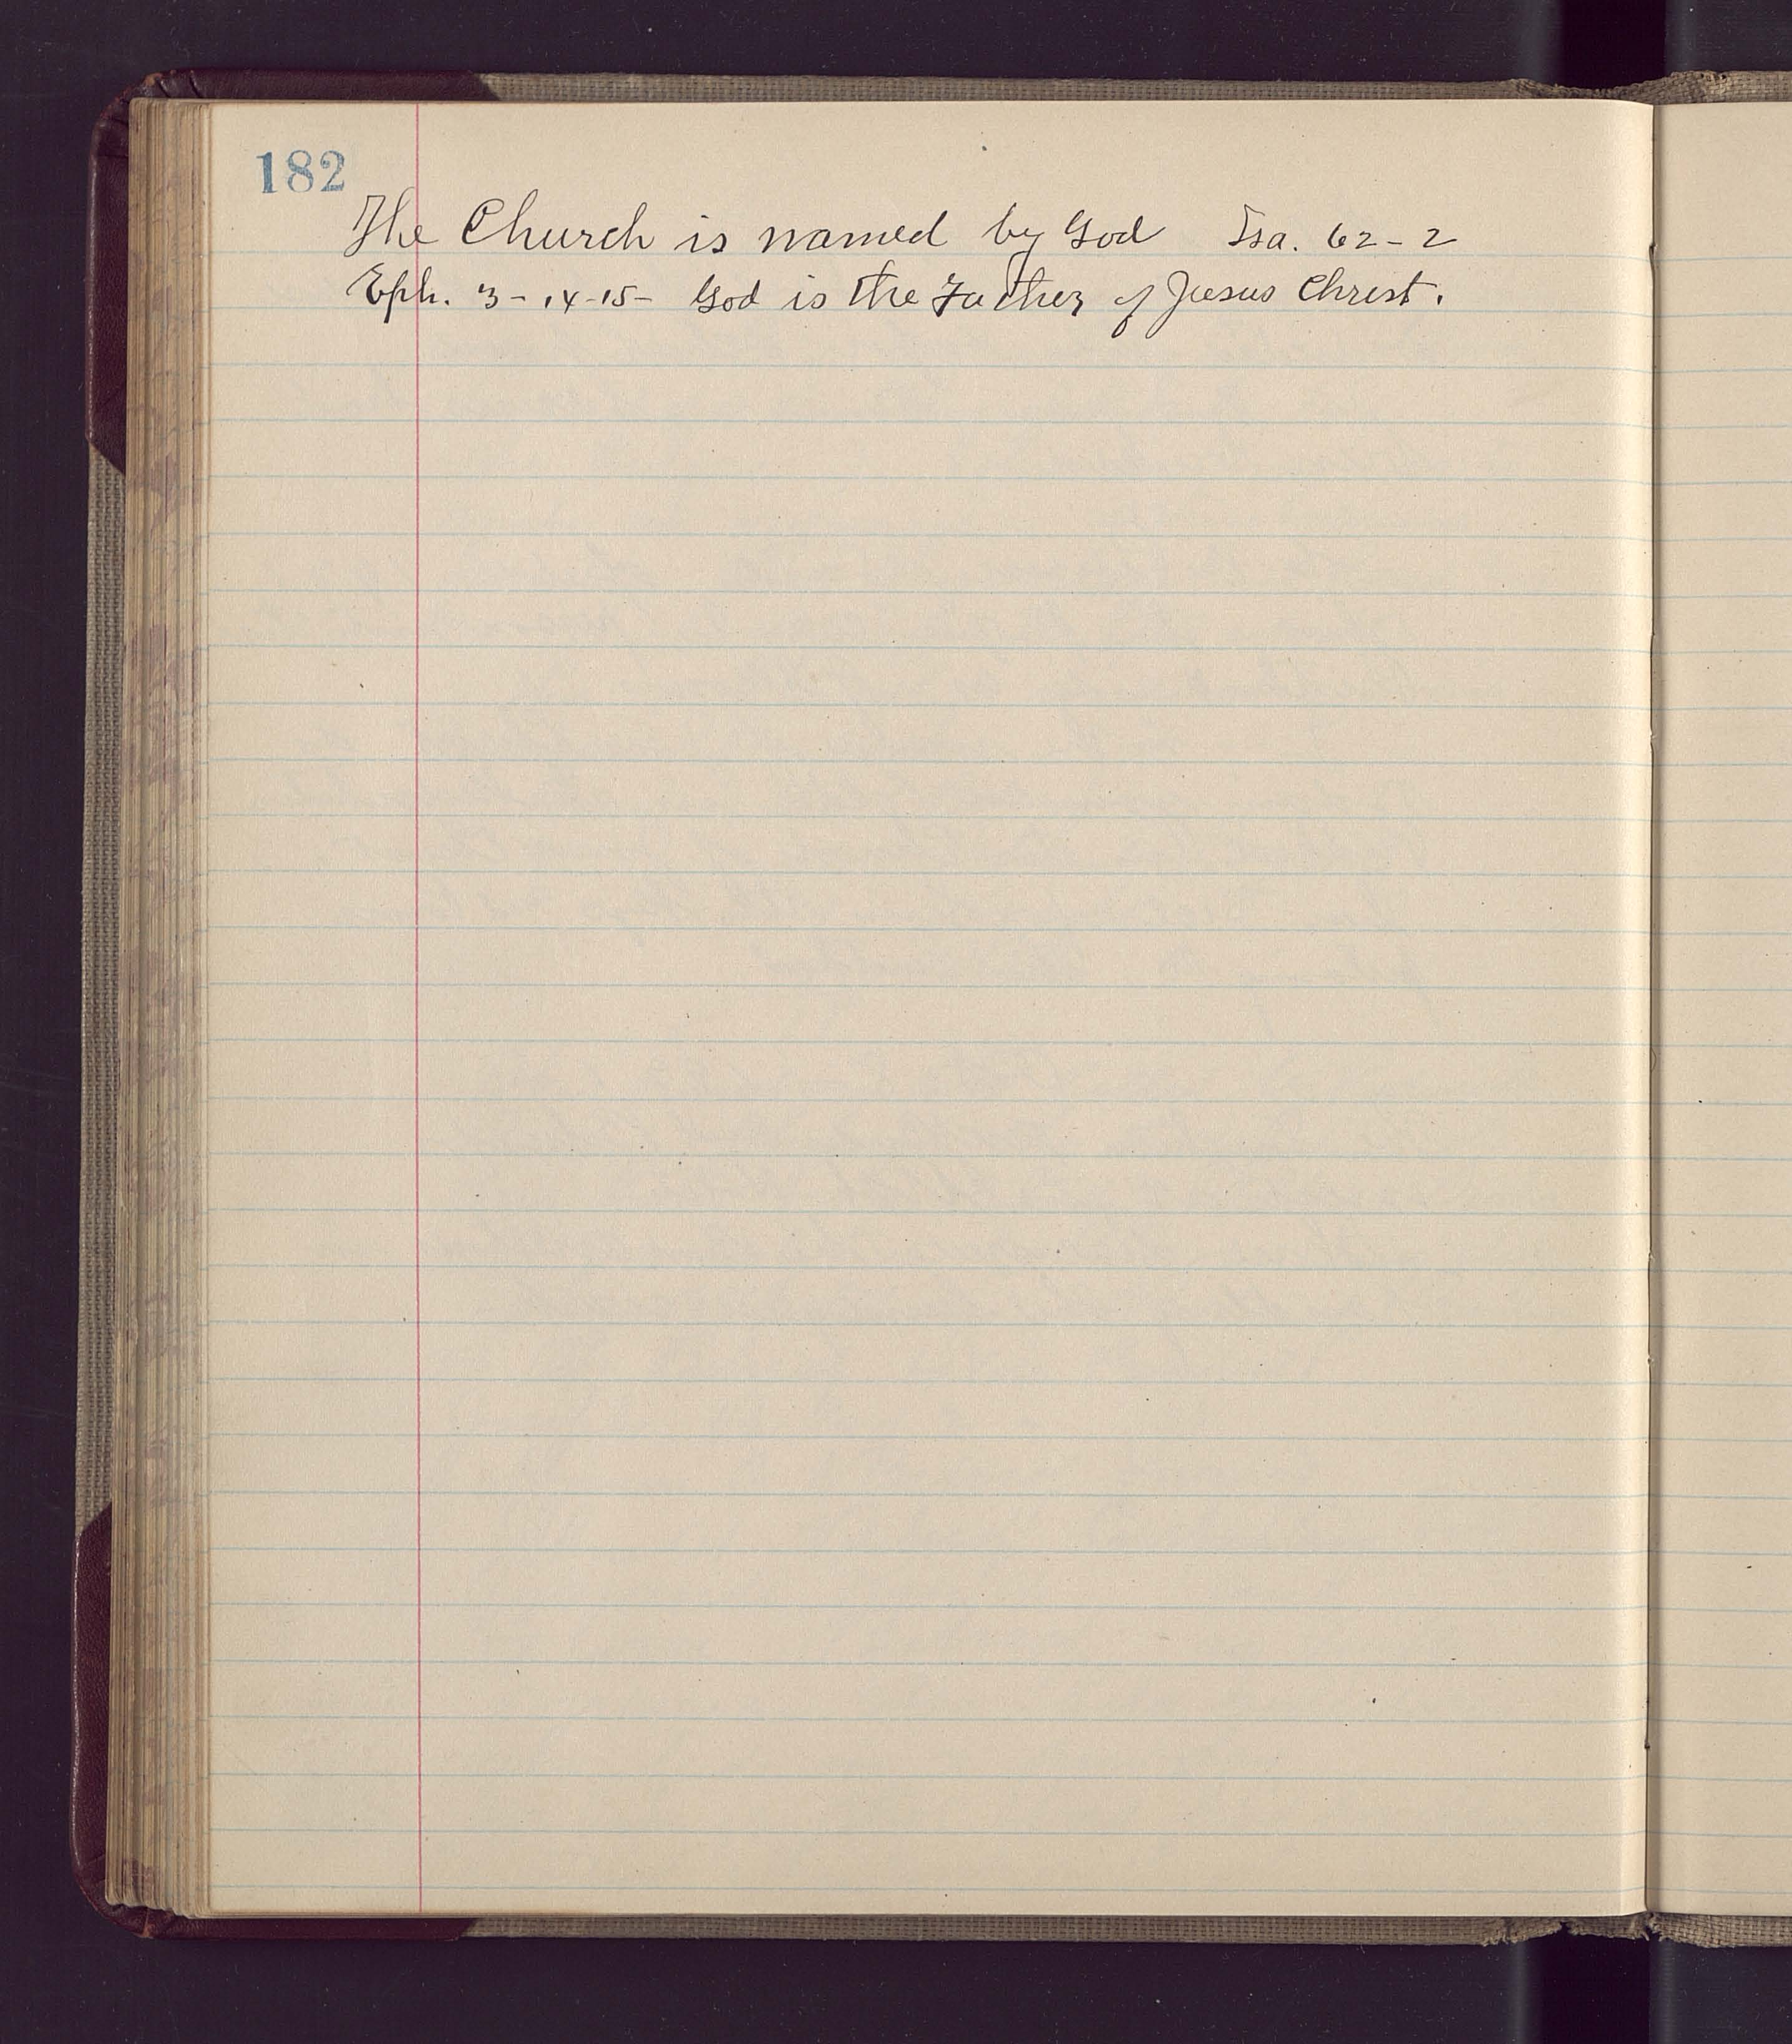 182
The Church is named by God Isa. 62-2
Eph. 3-14-15- God is the Father of Jesus Christ.